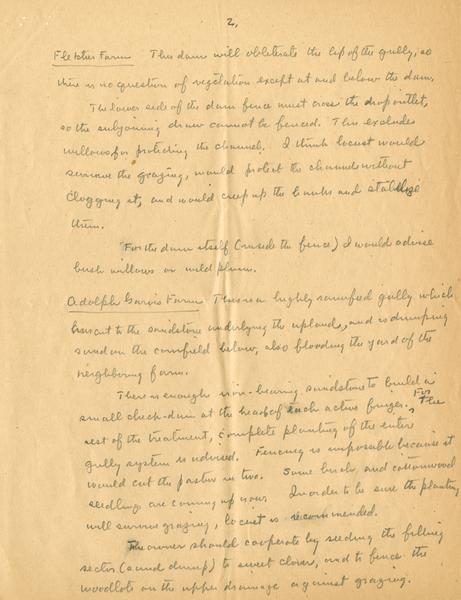 2.
Fletcher Farm The dam will obliterate the lip of the gully, so
there is no question of vegetation except at and below the dam.
The lower side of the dam fence must cross the drop outlet,
so the subjoining draw cannot be fenced. This excludes
willows for protecting the channel. I think locust would
survive the grazing, would protect the channel without
clogging it, and would creep up the banks and stabilize
them.
For the dam itself (inside the fence) I would advise
bush willows or wild plum.
Adolph Garvis Farm There is a highly ramified gully which
has cut to the sandstone underlying the uplands, and is dumping
sand on the cornfield below, also flooding the yard of the
neighboring farm.
There is enough iron-bearing sandstone to build a
small check-dam at the head of each active finger. For the
rest of the treatment, complete planting of the entire
gully system is advised. Fencing is impossible because it
would cut the pasture in two. Some birch and cottonwood
seedlings are coming up now. In order to be sure the planting
will survive grazing, locust is recommended.
The owner should cooperate by seeding the filling
sector (sand dump) to sweet clover, and to fence the
woodlots on the upper drainage against grazing.